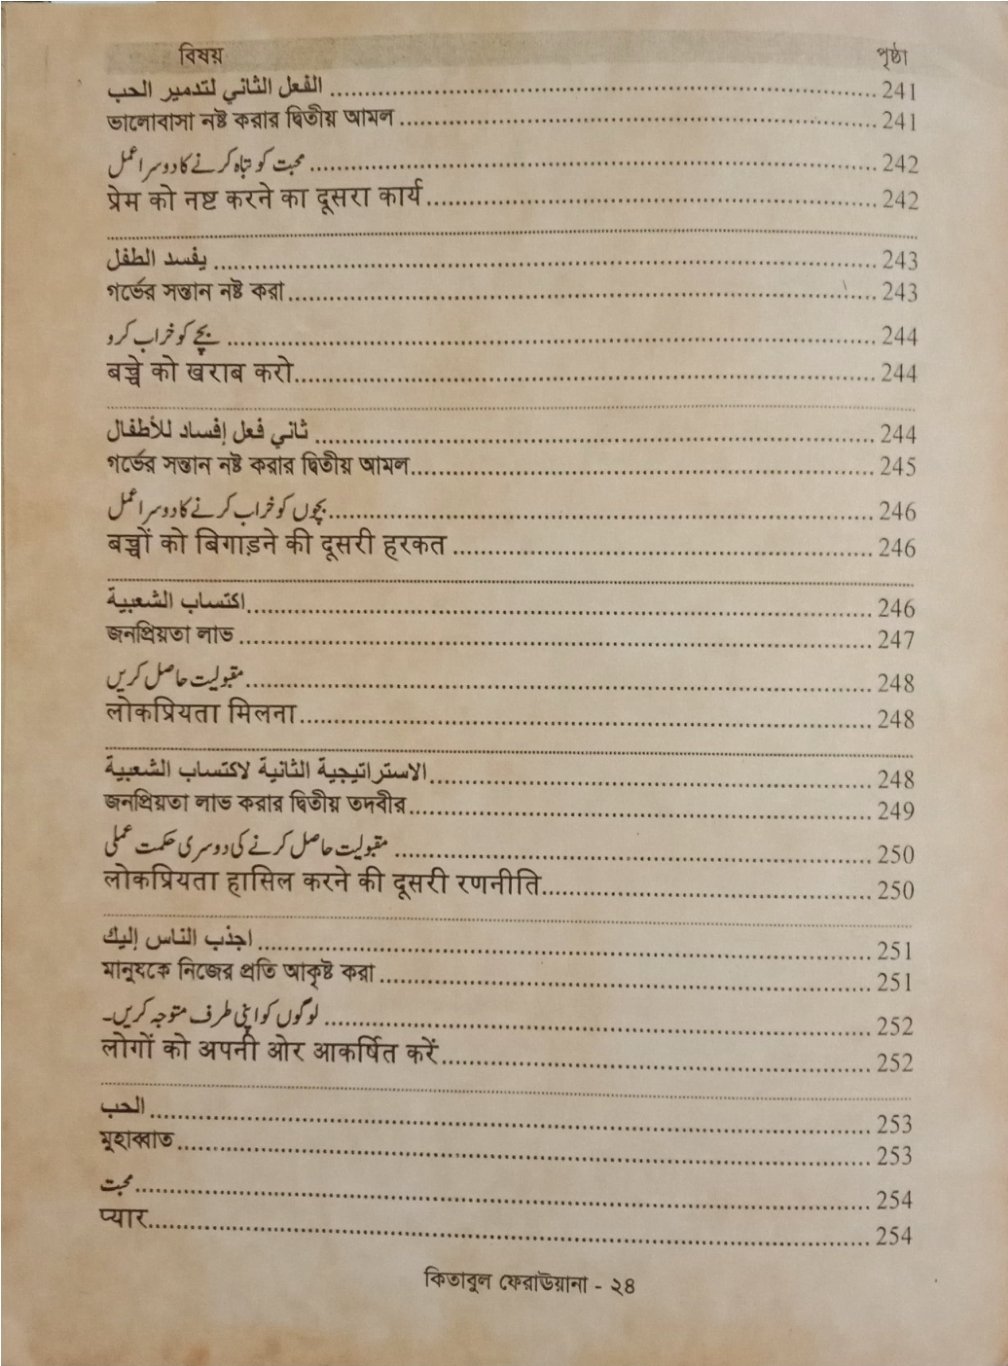 বিষয় পৃষ্ঠা
الفعل الثاني لتدمير الحب ........ 241
ভালোবাসা নষ্ট করার দ্বিতীয় আমল ........ 241
محبت کو تباہ کرنے کا دوسرا عمل ........ 242
प्रेम को नष्ट करने का दूसरा कार्य ........ 242
يفسد الطفل ........ 243
গর্ভের সন্তান নষ্ট করা ........ 243
بچے کو خراب کرو ........ 244
बच्चे को खराब करो ........ 244
ثاني فعل إفساد للأطفال ........ 244
গর্ভের সন্তান নষ্ট করার দ্বিতীয় আমল ........ 245
بچوں کو خراب کرنے کا دوسرا عمل ........ 246
बच्चों को बिगाड़ने की दूसरी हरकत ........ 246
اكتساب الشعبية ........ 246
জনপ্রিয়তা লাভ ........ 247
مقبولیت حاصل کریں ........ 248
लोकप्रियता मिलना ........ 248
الاستراتيجية الثانية لاكتساب الشعبية ........ 248
জনপ্রিয়তা লাভ করার দ্বিতীয় তদবীর ........ 249
مقبولیت حاصل کرنے کی دوسری حکمت عملی ........ 250
लोकप्रियता हासिल करने की दूसरी रणनीति ........ 250
اجذب الناس إليك ........ 251
মানুষকে নিজের প্রতি আকৃষ্ট করা ........ 251
لوگوں کو اپنی طرف متوجہ کریں۔ ........ 252
लोगों को अपनी ओर आकर्षित करें ........ 252
الحب ........ 253
মুহাব্বাত ........ 253
محبت ........ 254
प्यार ........ 254
কিতাবুল ফেরাউয়ানা - ২৪